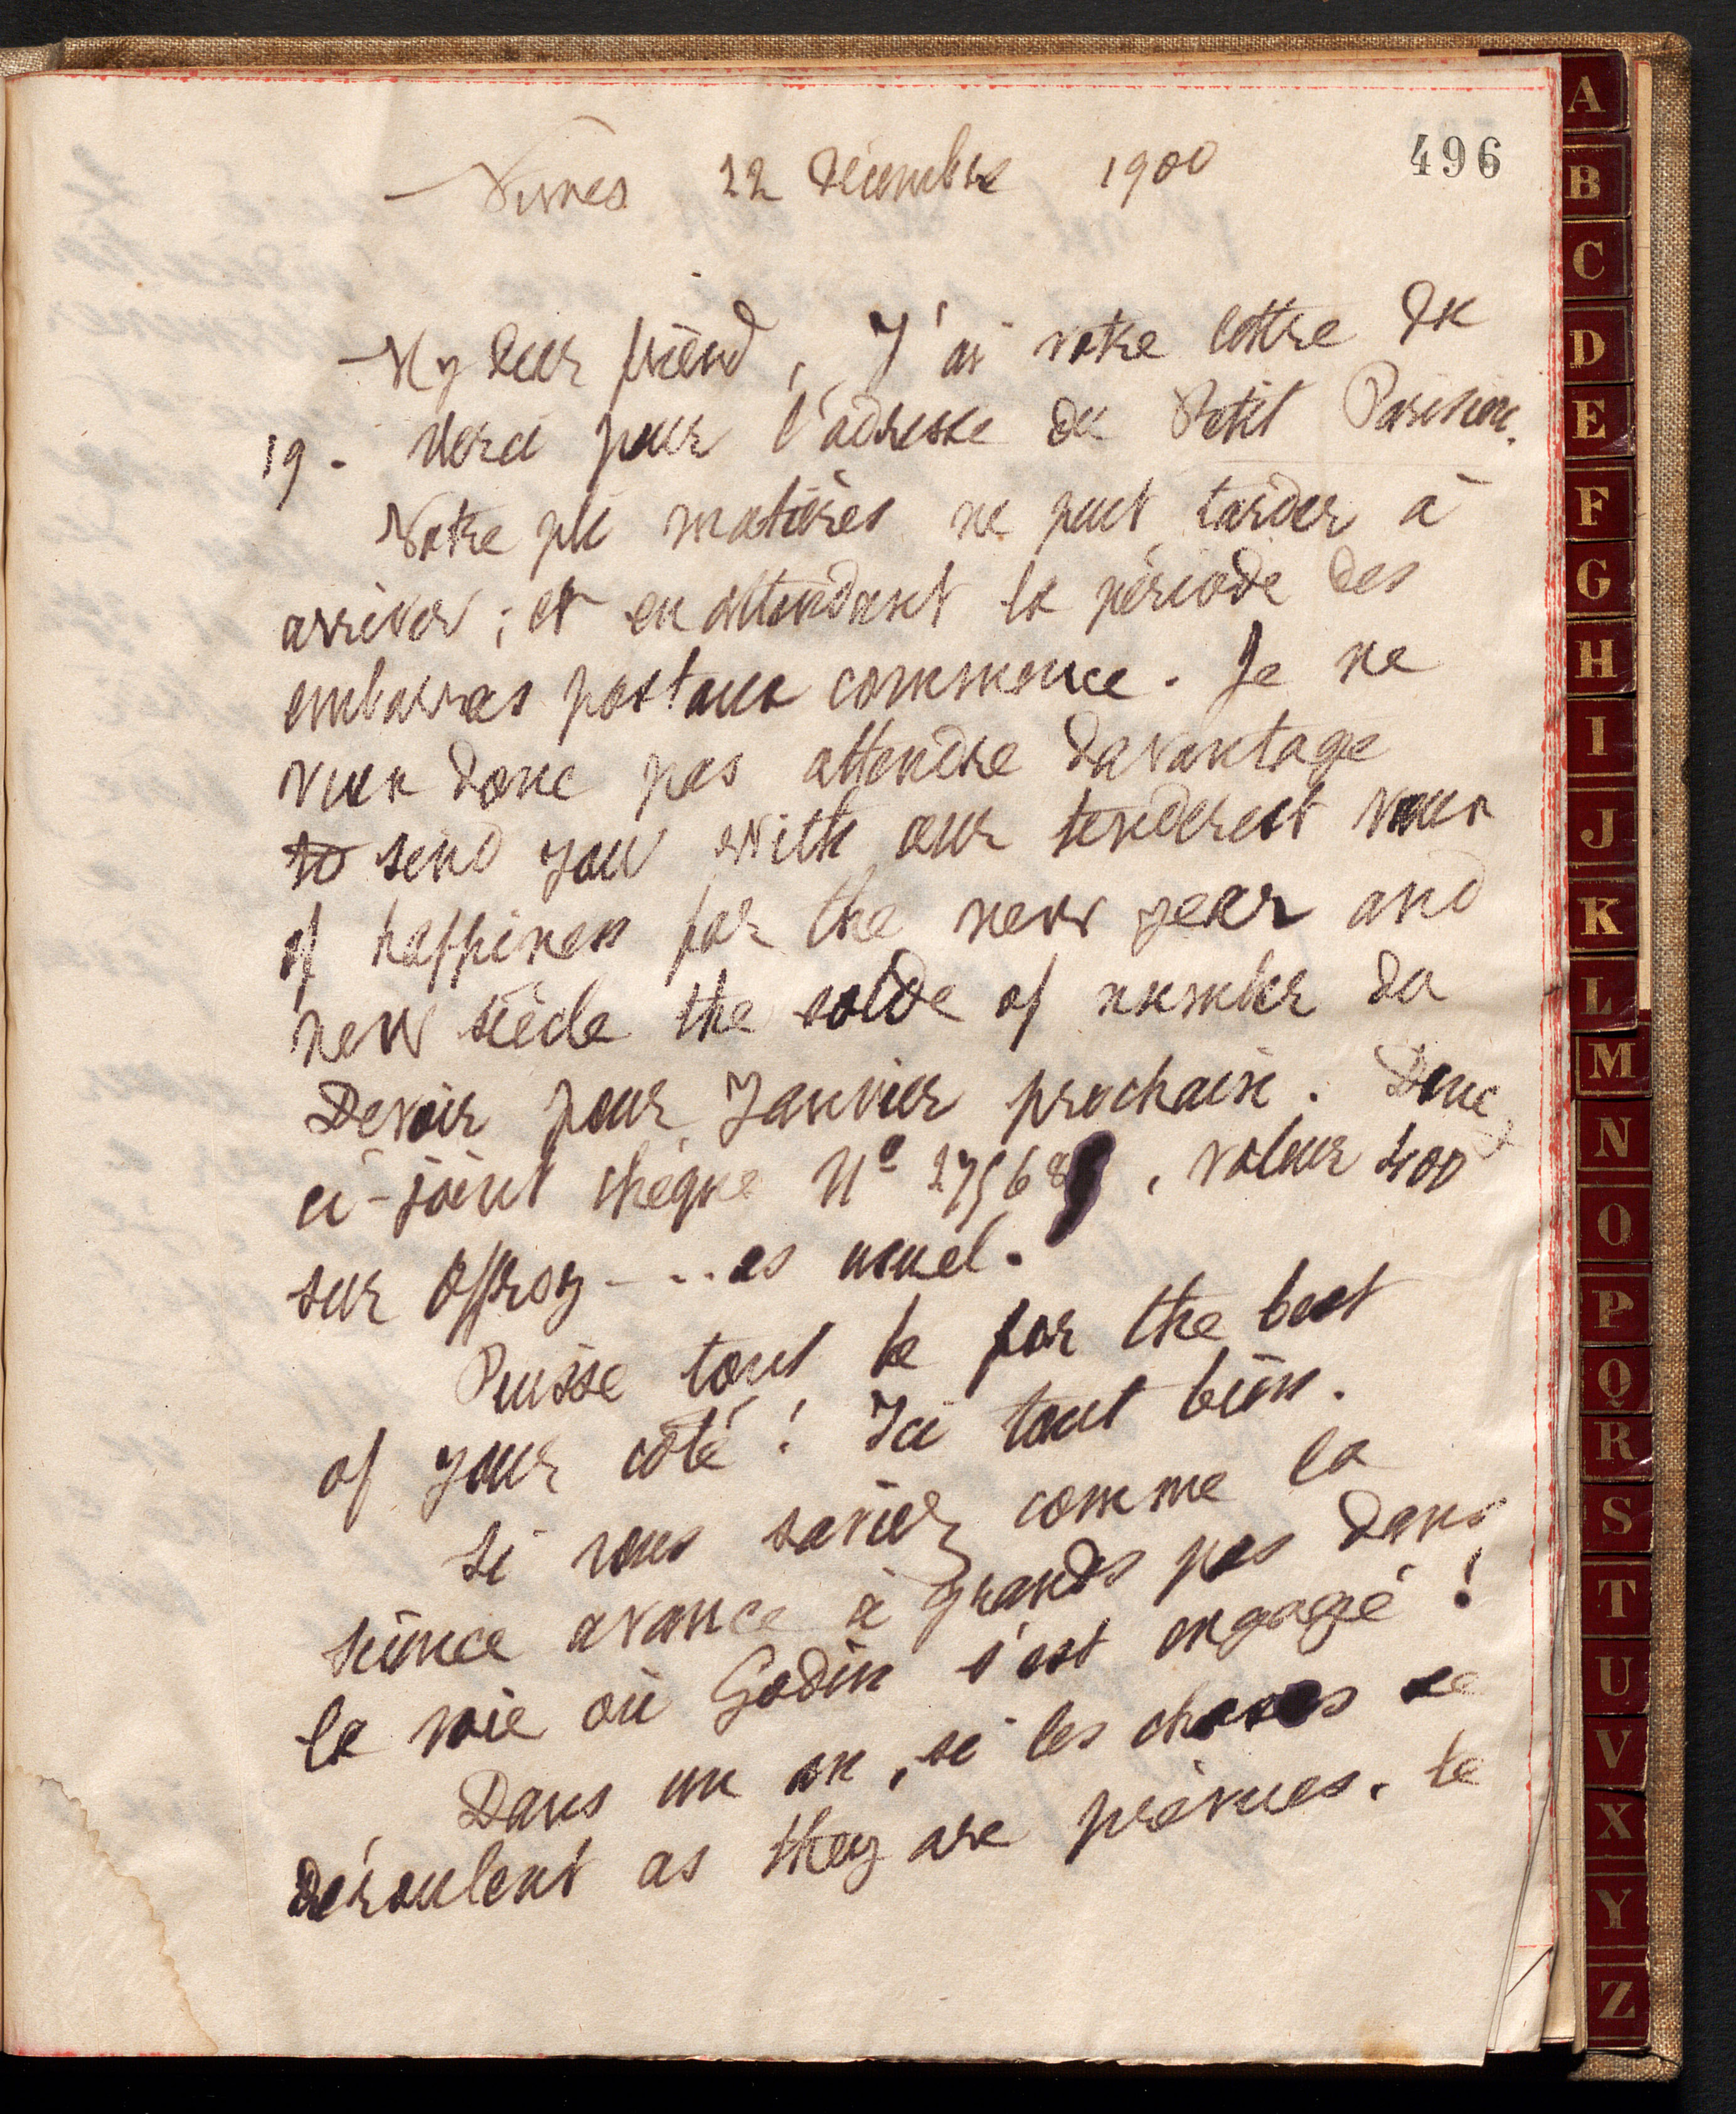 496
Nimes 22 Décembre 1900
My dear friend, J'ai votre lettre du
19. Merci pour l'adresse du Petit Parisien.
Votre pli matières ne peut tarder à
arriver ; et en attendant la période des
embarras postaux commence. Je ne
veux donc pas attendre davantage
to send you with our tenderest vœux
of happiness for the new year and
new siècle the solde of number du
Devoir pour Janvier prochain. Donc,
ci-joint chèque No 27568 , valeur 400
sur Offroy - .. as usuel.
Puisse tout be for the best
of your côté ! Ici tout bien.
Si vous saviez comme la
science avance à grands pas dans
la voie où Godin s'est engagé !
Dans un an, si les choses se
déroulent as they are prévues, le
A
B
C
D
E
F
G
H
I
J
K
L
M
N
O
P
Q
R
S
T
U
V
X
Y
Z